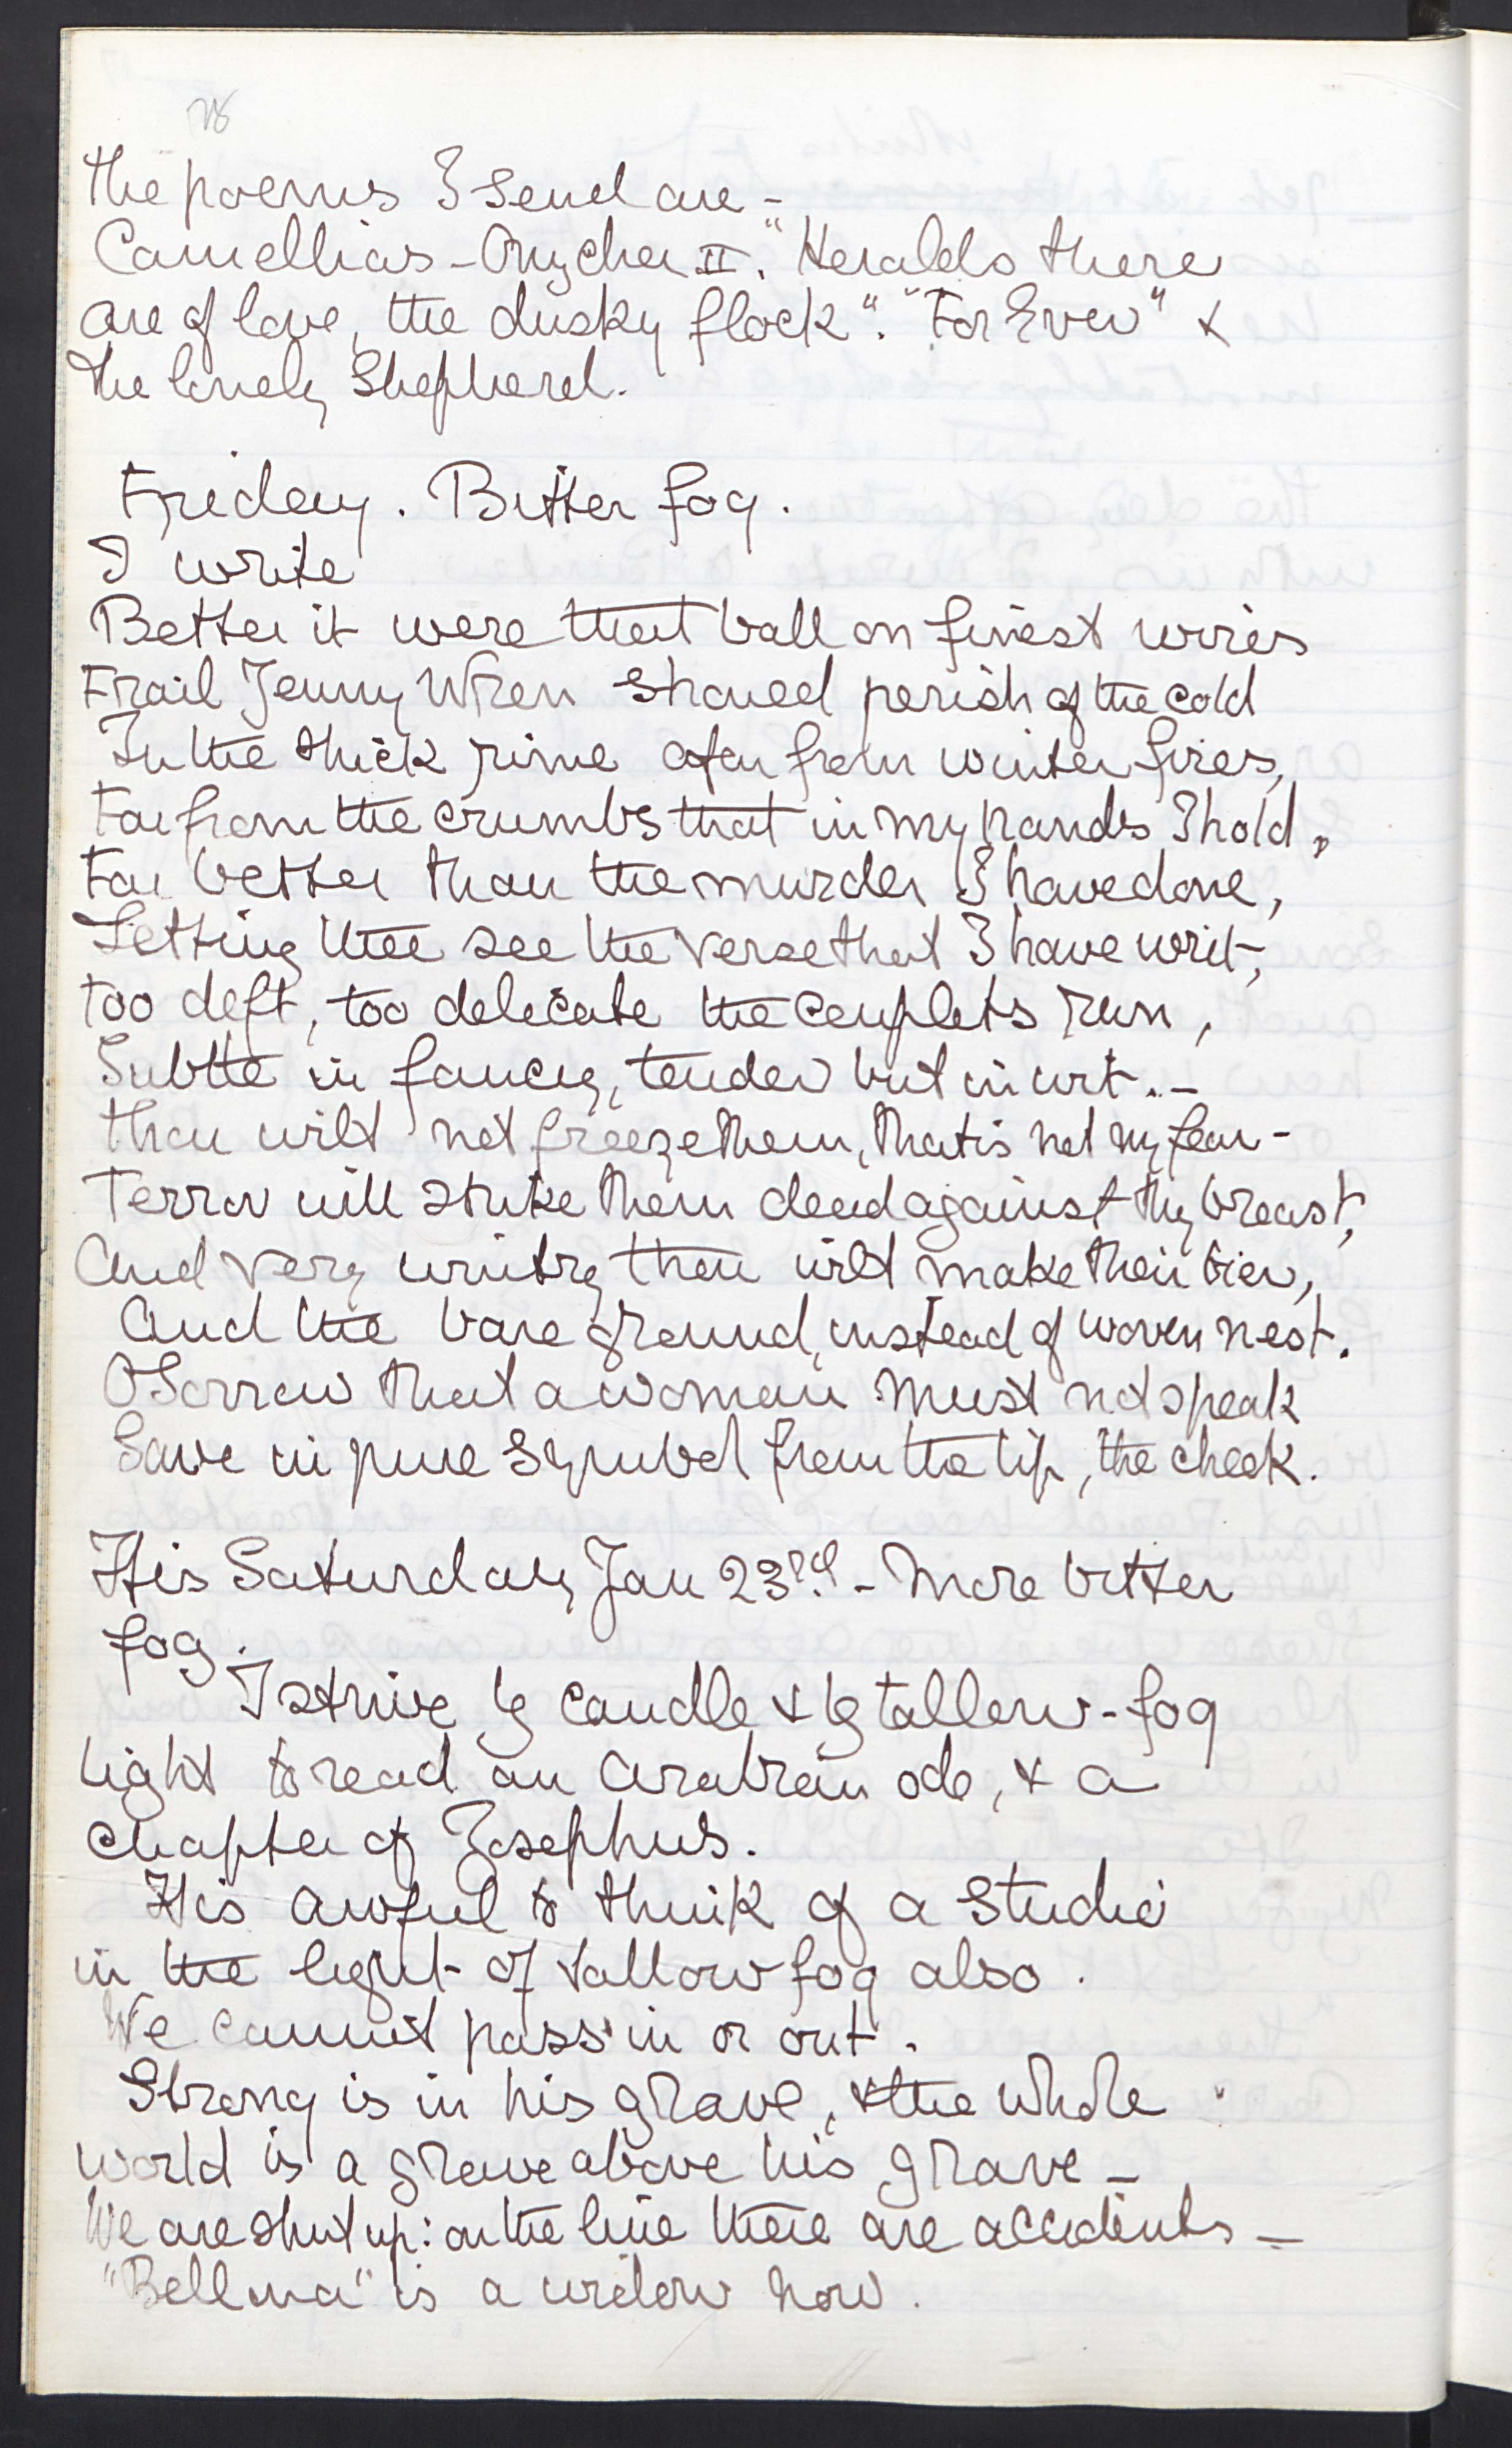 The poems I send are -
Camellias - Onycha II. "Heralds there
are of love, the dusky flock". "For Ever" &
The lonely Shepherd.
Friday. Bitter fog.
I write
Better it were that ball on finest wires
Frail Jenny Wren should perish of the cold
In the thick rime afar from winter fires,
Far from the crumbs that in my hands I hold,
Far better than the murder I have done,
Letting thee see the verse that I have writ,
Too deft, too delicate the couplets run,
Subtle in fancy, tender but in wit. -
Thou wilt not freeze them, that is not my fear -
Terror will strike them dead against thy breast,
And very wintry thou wilt make their bier,
And the bare ground, instead of woven nest.
O Sorrow that a woman must not speak
Save in pure symbol from the lip, the cheek.
It is Saturday Jan 23rd. - more bitter
fog.
I strive by candle & by tallow-fog
light to read an Arabian ode, & a
chapter of Josephus.
It is awful to think of a Studio
in the light of tallow fog also.
We cannot pass in or out.
Strong is in his grave, & the whole
world is a grave above his grave -
We are shut up: on the line there are accidents -
"Bellma" is a widow now.